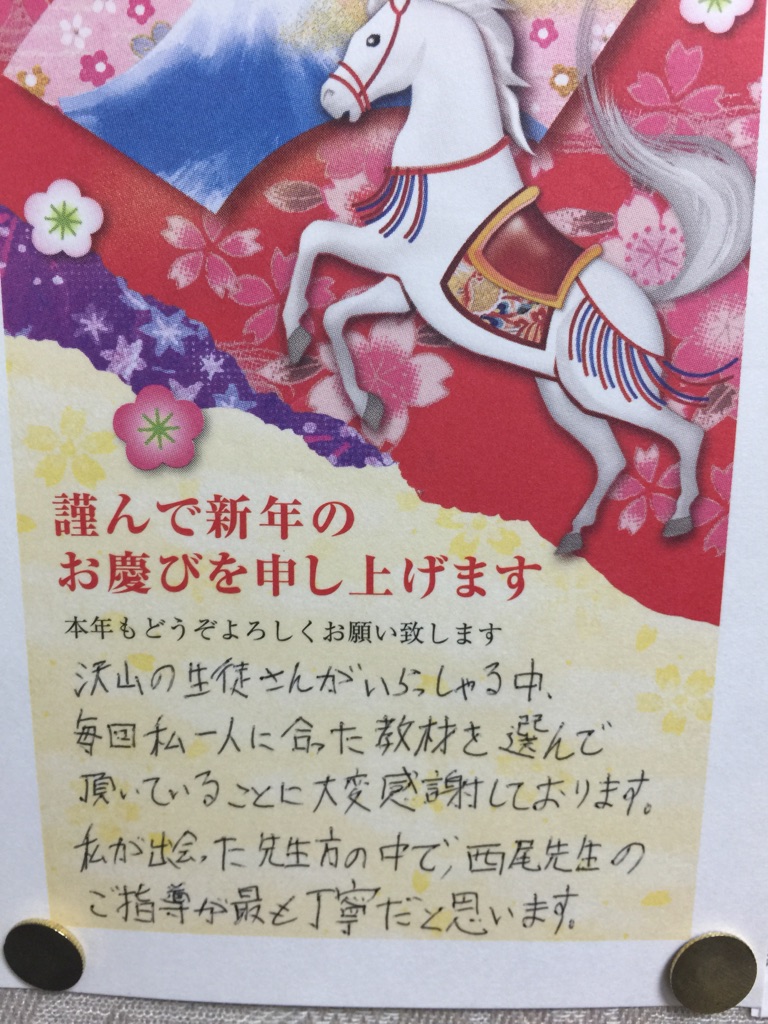 謹んで新年の
お慶びを申し上げます
本年もどうぞよろしくお願い致します
沢山の生徒さんがいらっしゃる中、
毎回私一人に合った教材を選んで
頂いていることに大変感謝しております。
私が出会った先生方の中で、西尾先生の
ご指導が最も丁寧だと思います。